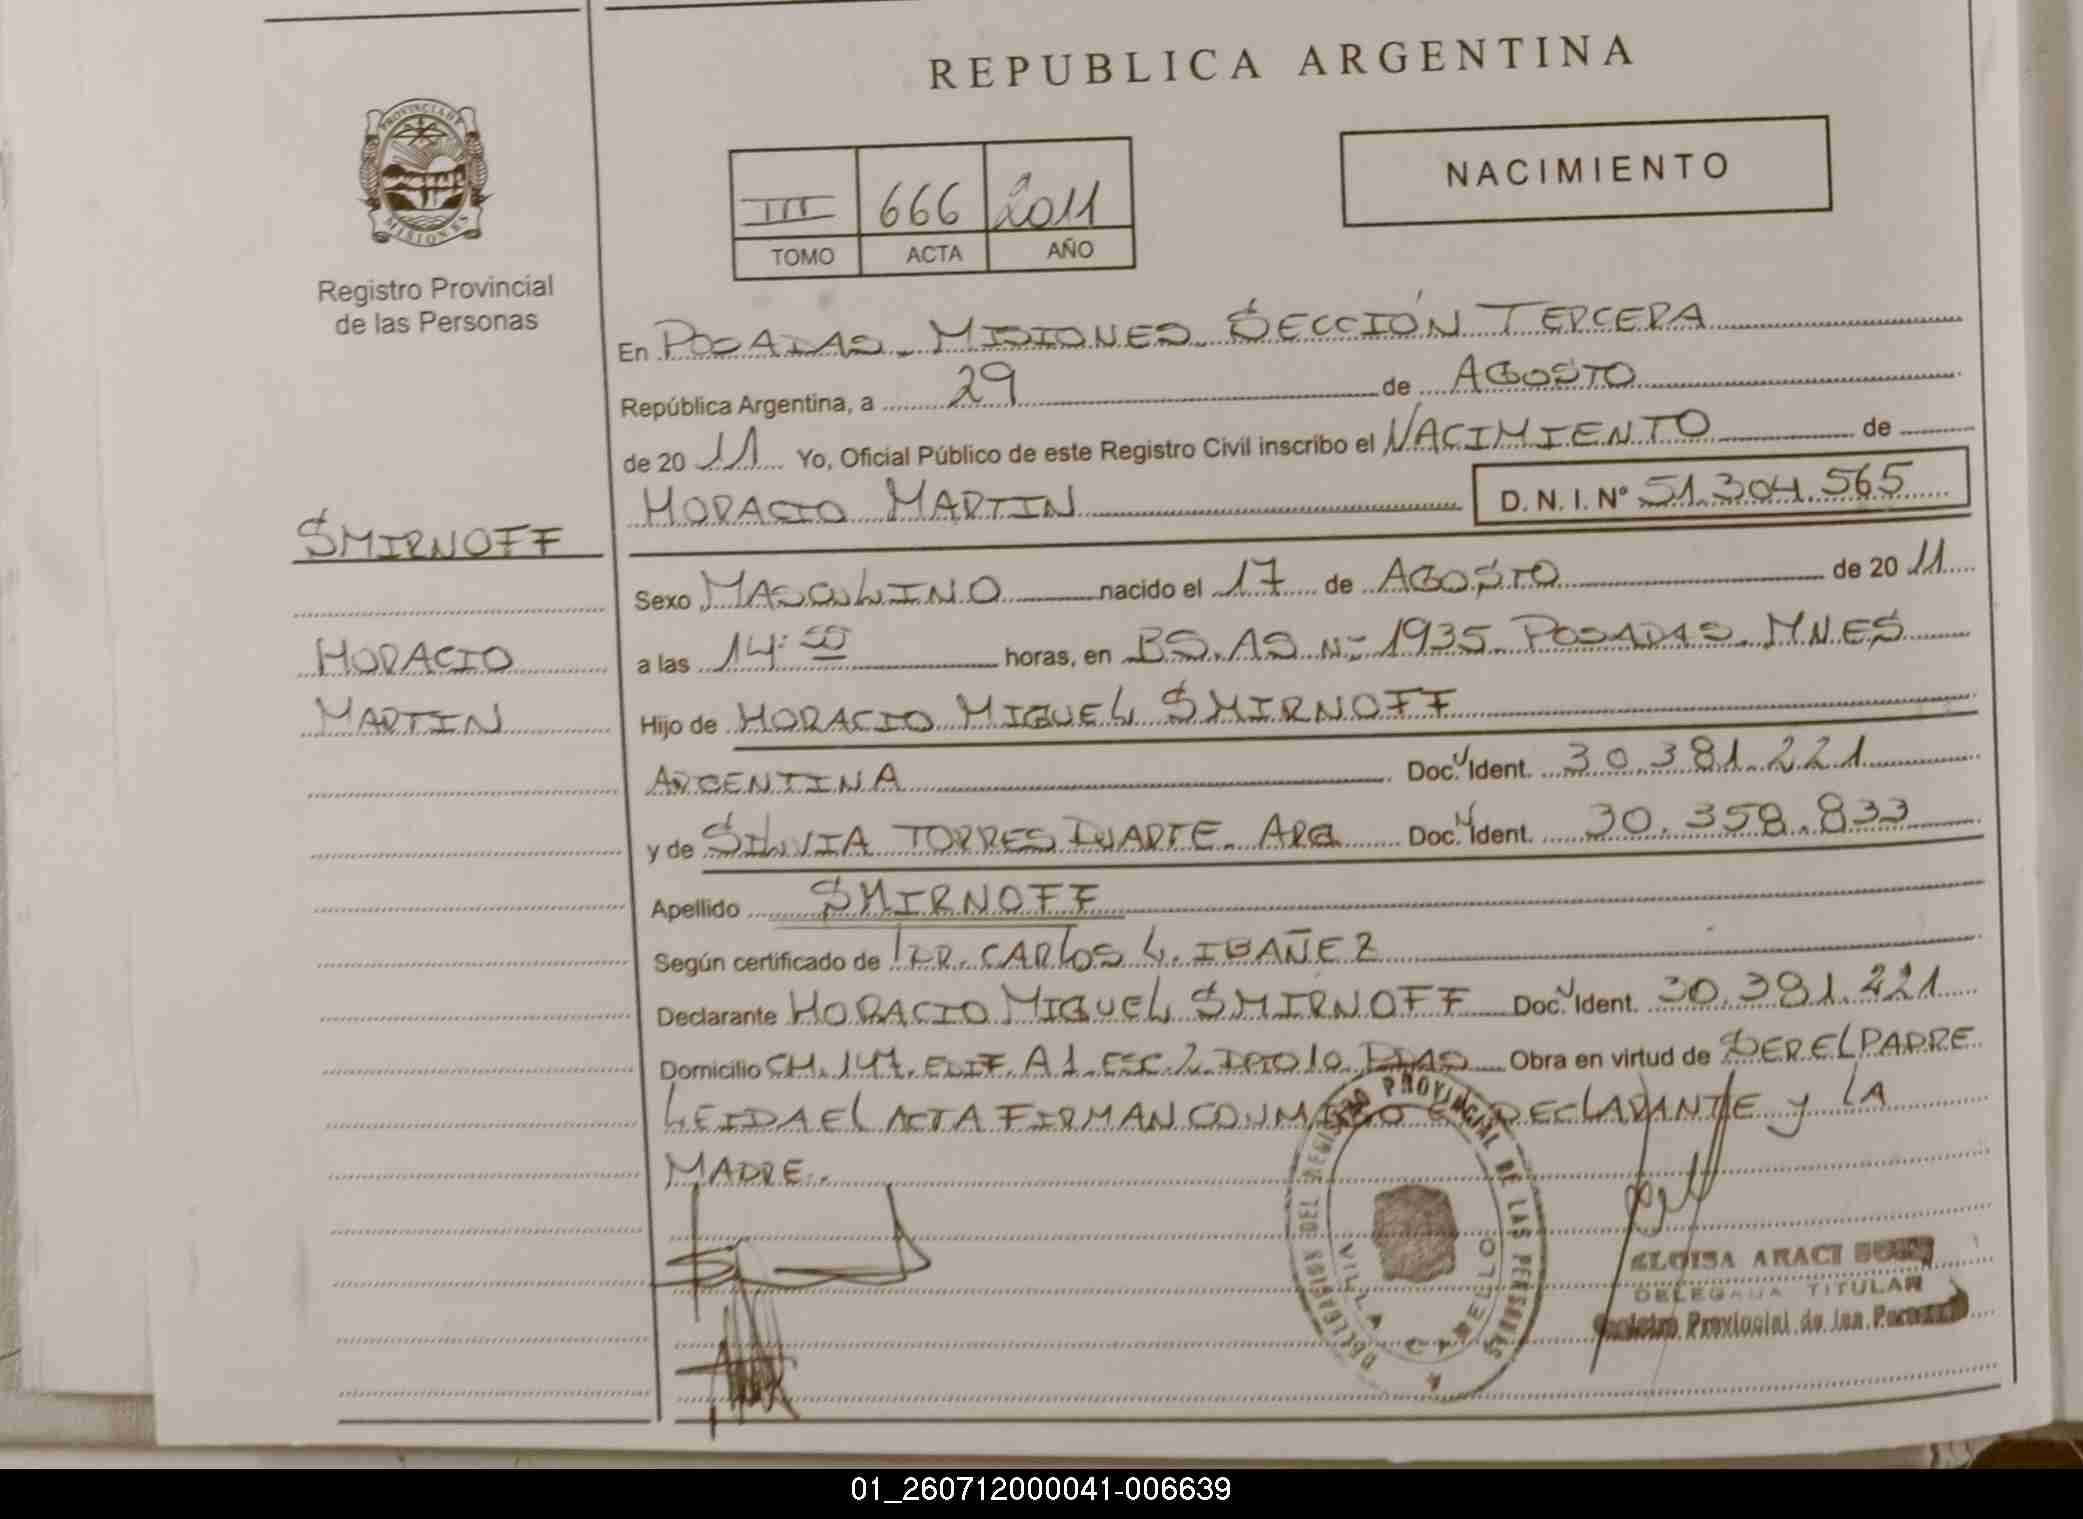 REPUBLICA ARGENTINA
PROVINCIA DE
MISIONES
Registro Provincial
de las Personas
III 666 2011
TOMO ACTA AÑO
NACIMIENTO
En POSADAS - MISIONES - SECCIÓN TERCERA
República Argentina, a 29 de AGOSTO
de 20 11 Yo, Oficial Público de este Registro Civil inscribo el NACIMIENTO de
HORACIO MARTIN D. N. I. N° 51.304.565
SMIRNOFF
HORACIO
MARTIN
Sexo MASCULINO nacido el 17 de AGOSTO de 20 11
a las 14:50 horas, en BS. AS N= 1935 - POSADAS - MNES
Hijo de HORACIO MIGUEL SMIRNOFF
ARGENTINA Doc. Ident. 30.381.221
y de SILVIA TORRES DUARTE - ARG Doc. Ident. 30.358.833
Apellido SMIRNOFF
Según certificado de DR. CARLOS L. IBAÑEZ
Declarante HORACIO MIGUEL SMIRNOFF Doc. Ident. 30.381.221
Domicilio CH. 147. EDIF. A1. ESC. 2. DPTO 10. PDAS Obra en virtud de SER EL PADRE
LEIDA EL ACTA FIRMAN CONMIGO EL DECLARANTE y LA
MADRE.
DELEGACION DEL REGISTRO PROVINCIAL DE LAS PERSONAS
VILLA CABELLO
ELOISA ARACI
DELEGADA TITULAR
Registro Provincial de las Personas
01_260712000041-006639